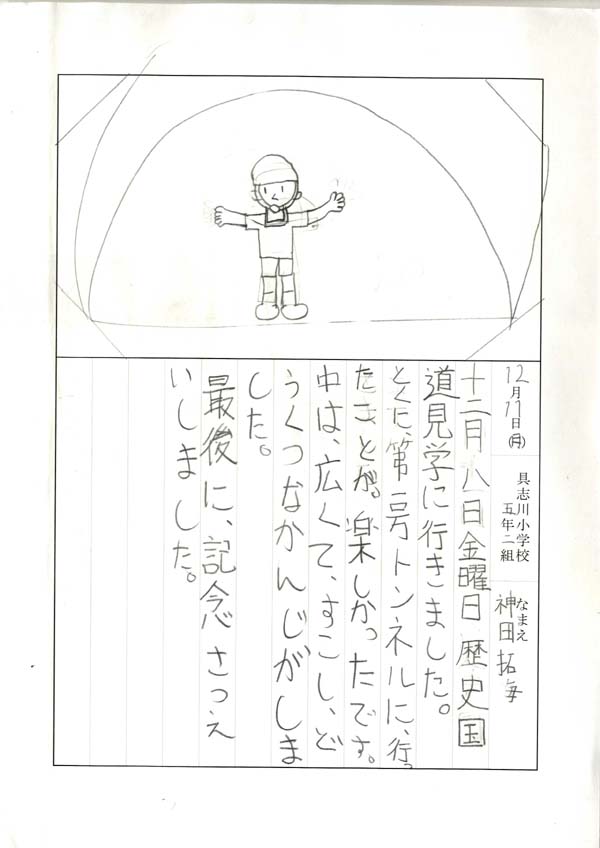 12月11日(月)
具志川小学校
五年二組
なまえ
神田拓海
十二月八日金曜日歴史国
道見学に行きました。
とくに第一号トンネルに、行っ
たことが。楽しかったです。
中は、広くて、すこし、ど
うくつなかんじがしま
した。
最後に、記念さつえ
いしました。